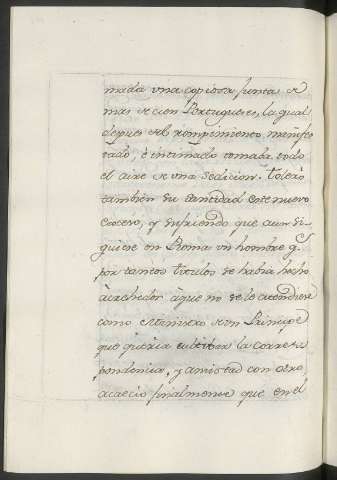 mada vna copiosa Junta de
mas de cien Portugueses, la qual
depues del rompimiento, manifes
tado, è intimado tomaba todo
el aire de vna sedicion. Tolerò
tambien su santidad este nuevo
exceso, y sufriendo que aun si-
guiese en Roma vn hombre q.^e
por tantos titulos se habia hecho
àcrehedor àque no se le atendiese
como Ministro de vn Principe
que queria cultibar la corres-
pondencia, y amistad con otro,
acaeciò finalmente que en el